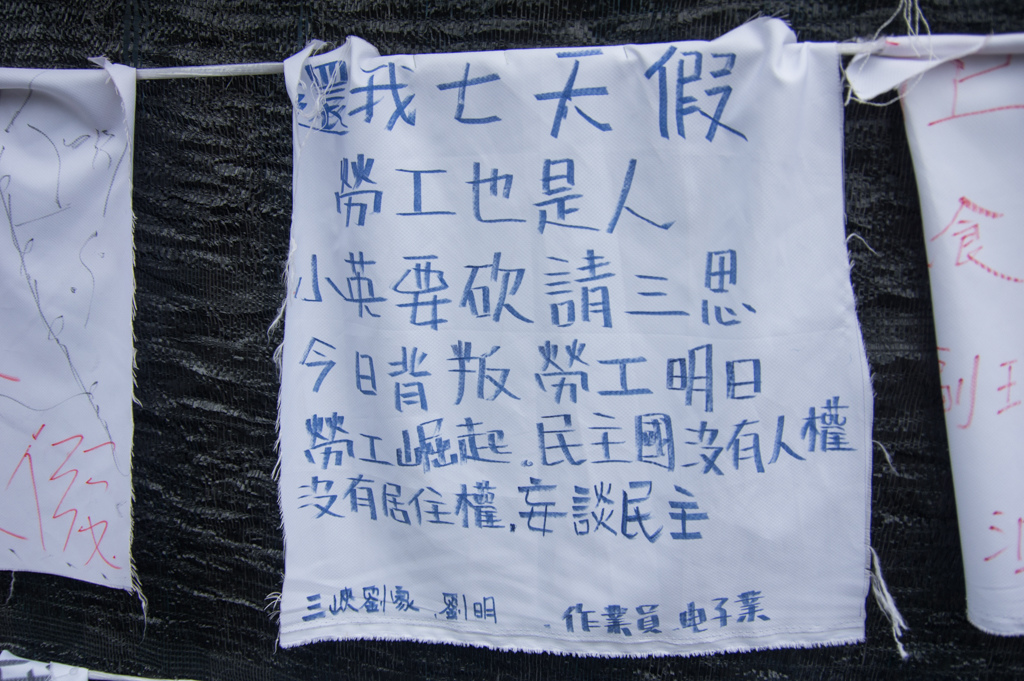 還我七天假
勞工也是人
小英要砍請三思
今日背叛勞工明日
勞工崛起。民主國沒有人權
沒有居住權,妄談民主
三峽劉家.劉明 .作業員 电子業
上
食